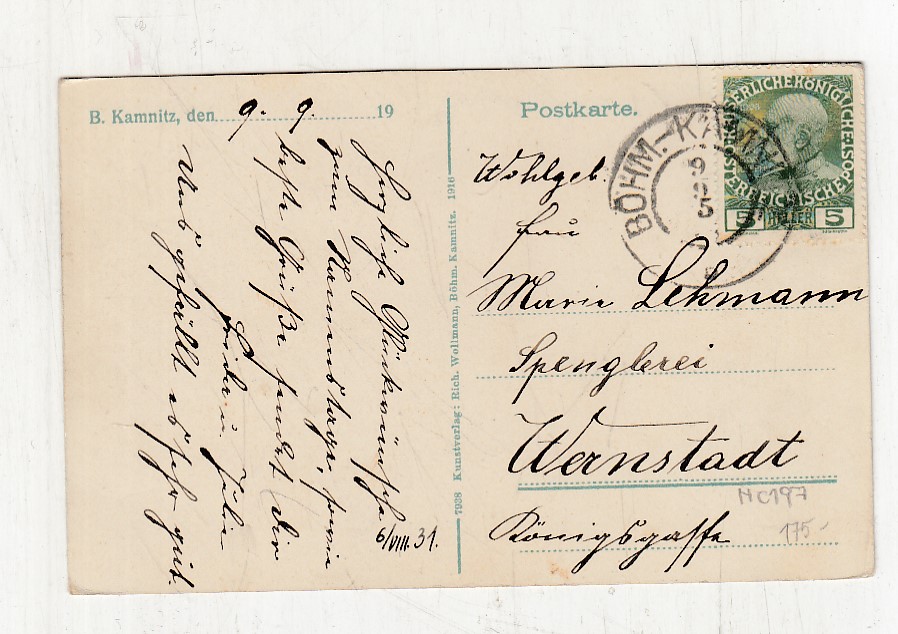 B. Kamnitz, den 9. 9. 19
Postkarte.
KAISERLICHE KÖNIGLICHE ÖSTERREICHISCHE POST
5 HELLER 5
BÖHM.-KAMN
9
Wohlgeb.
Frau
Marie Lehmann
Spenglerei
Wernstadt
Königsgasse
NC197
175-
7938 Kunstverlag: Rich. Wollmann, Böhm. Kamnitz. 1916
Herzliche Glückwünsche
zum Namenstage, sowie
beste Grüße sendet Dir
Julie
Uns gefällt es sehr gut.
6/VIII. 31.